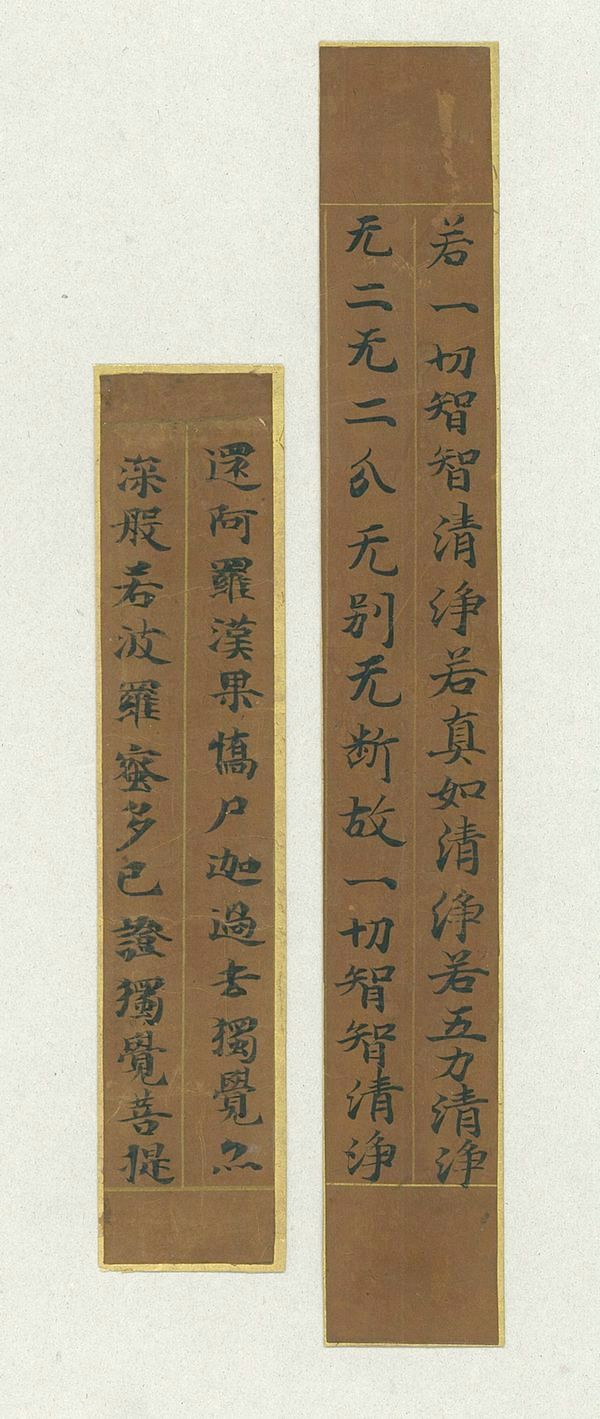 若一切智智清淨若真如清淨若五力清淨
无二无二分无别无断故一切智智清淨
還阿羅漢果憍尸迦過去獨覺亦
深般若波羅蜜多已證獨覺菩提